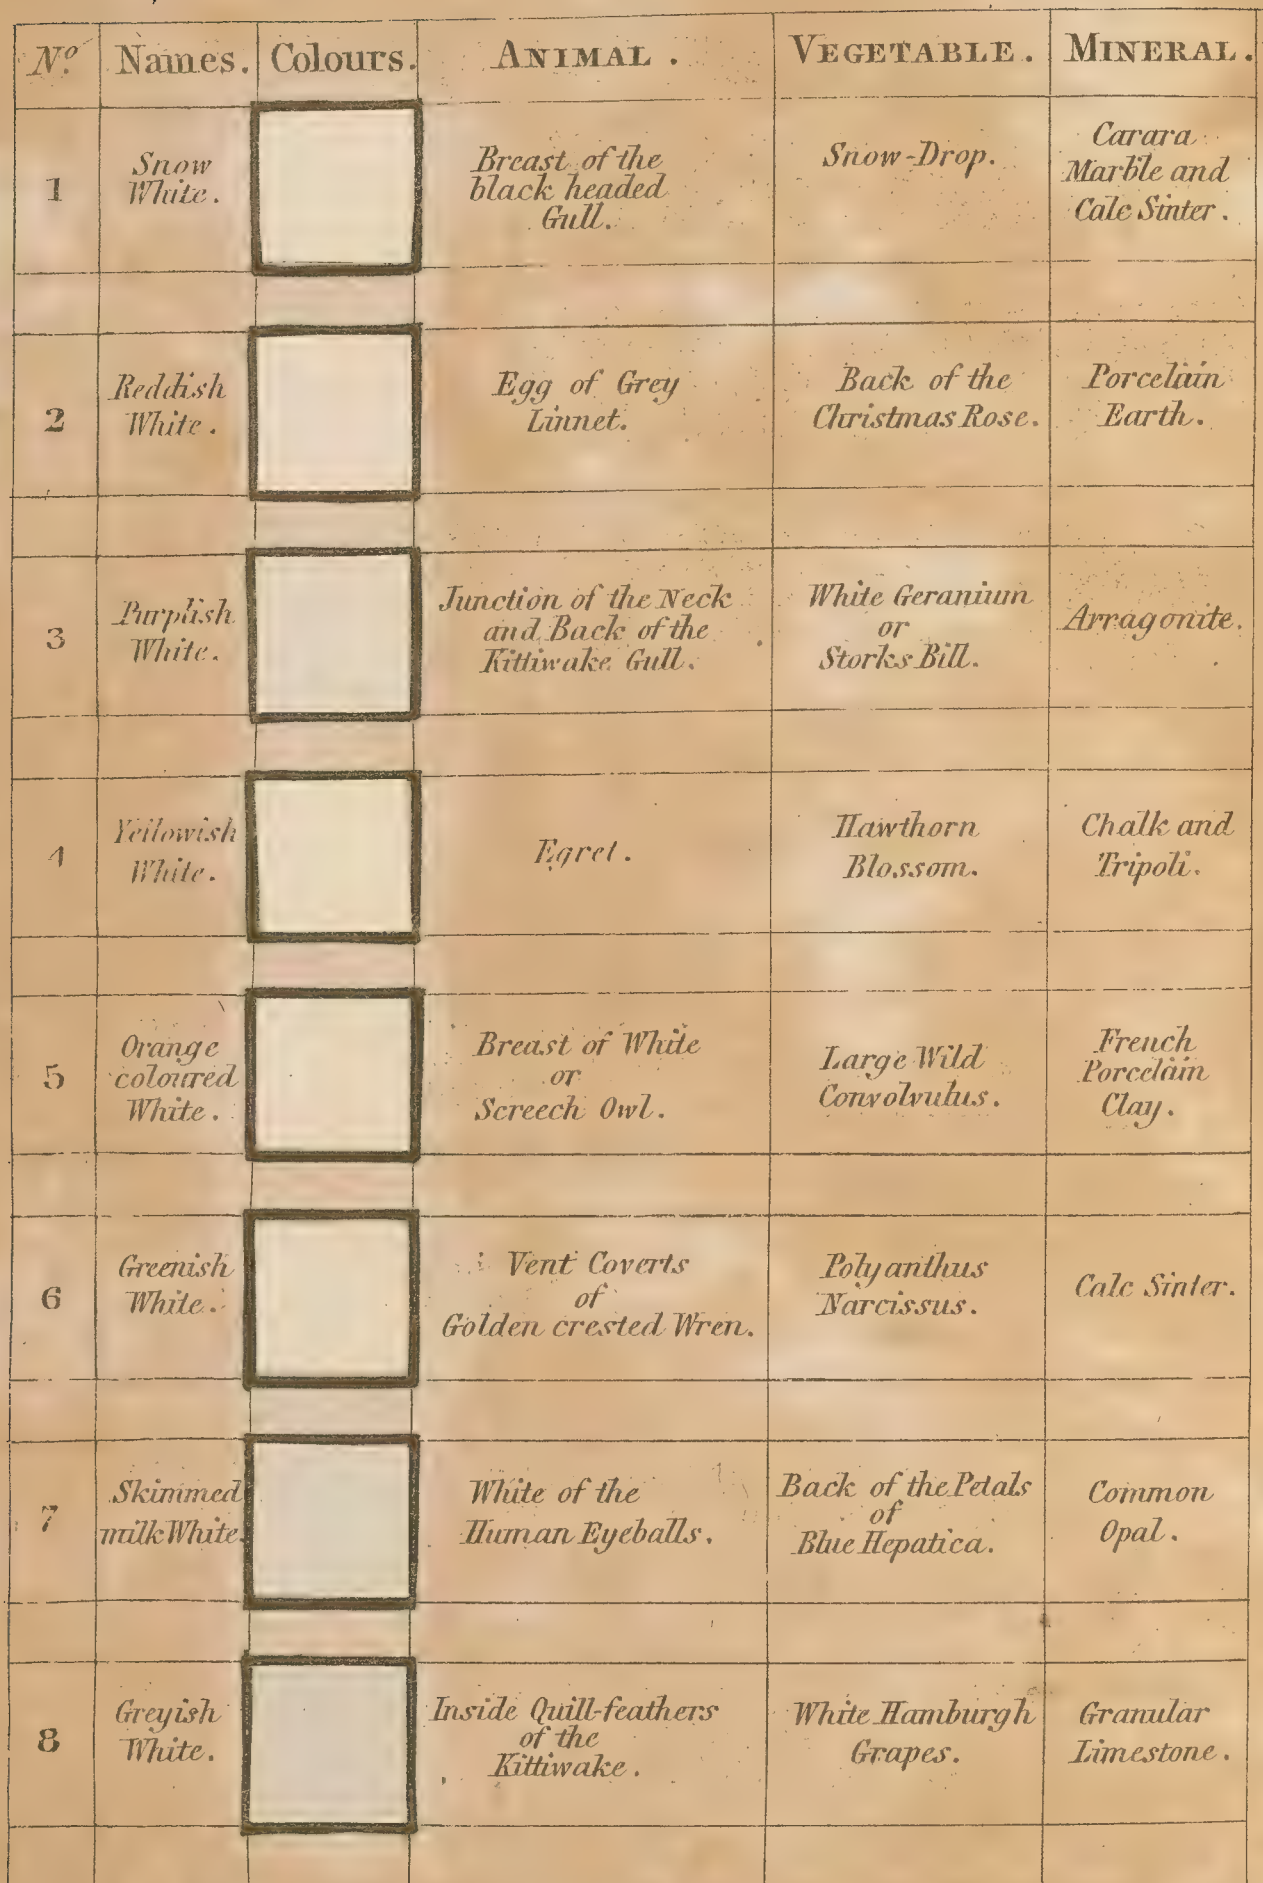 Nº. Names. Colours. ANIMAL. VEGETABLE. MINERAL.
1
Snow
White.
Breast of the
black headed
Gull.
Snow-Drop.
Carara
Marble and
Calc Sinter.
2
Reddish
White.
Egg of Grey
Linnet.
Back of the
Christmas Rose.
Porcelain
Earth.
3
Purplish
White.
Junction of the Neck
and Back of the
Kittiwake Gull.
White Geranium
or
Storks Bill.
Arragonite.
4
Yellowish
White.
Egret.
Hawthorn
Blossom.
Chalk and
Tripoli.
5
Orange
coloured
White.
Breast of White
or
Screech Owl.
Large Wild
Convolvulus.
French
Porcelain
Clay.
6
Greenish
White.
Vent Coverts
of
Golden crested Wren.
Polyanthus
Narcissus.
Calc Sinter.
7
Skimmed
milk White.
White of the
Human Eyeballs.
Back of the Petals
of
Blue Hepatica.
Common
Opal.
8
Greyish
White.
Inside Quill-feathers
of the
Kittiwake.
White Hamburgh
Grapes.
Granular
Limestone.